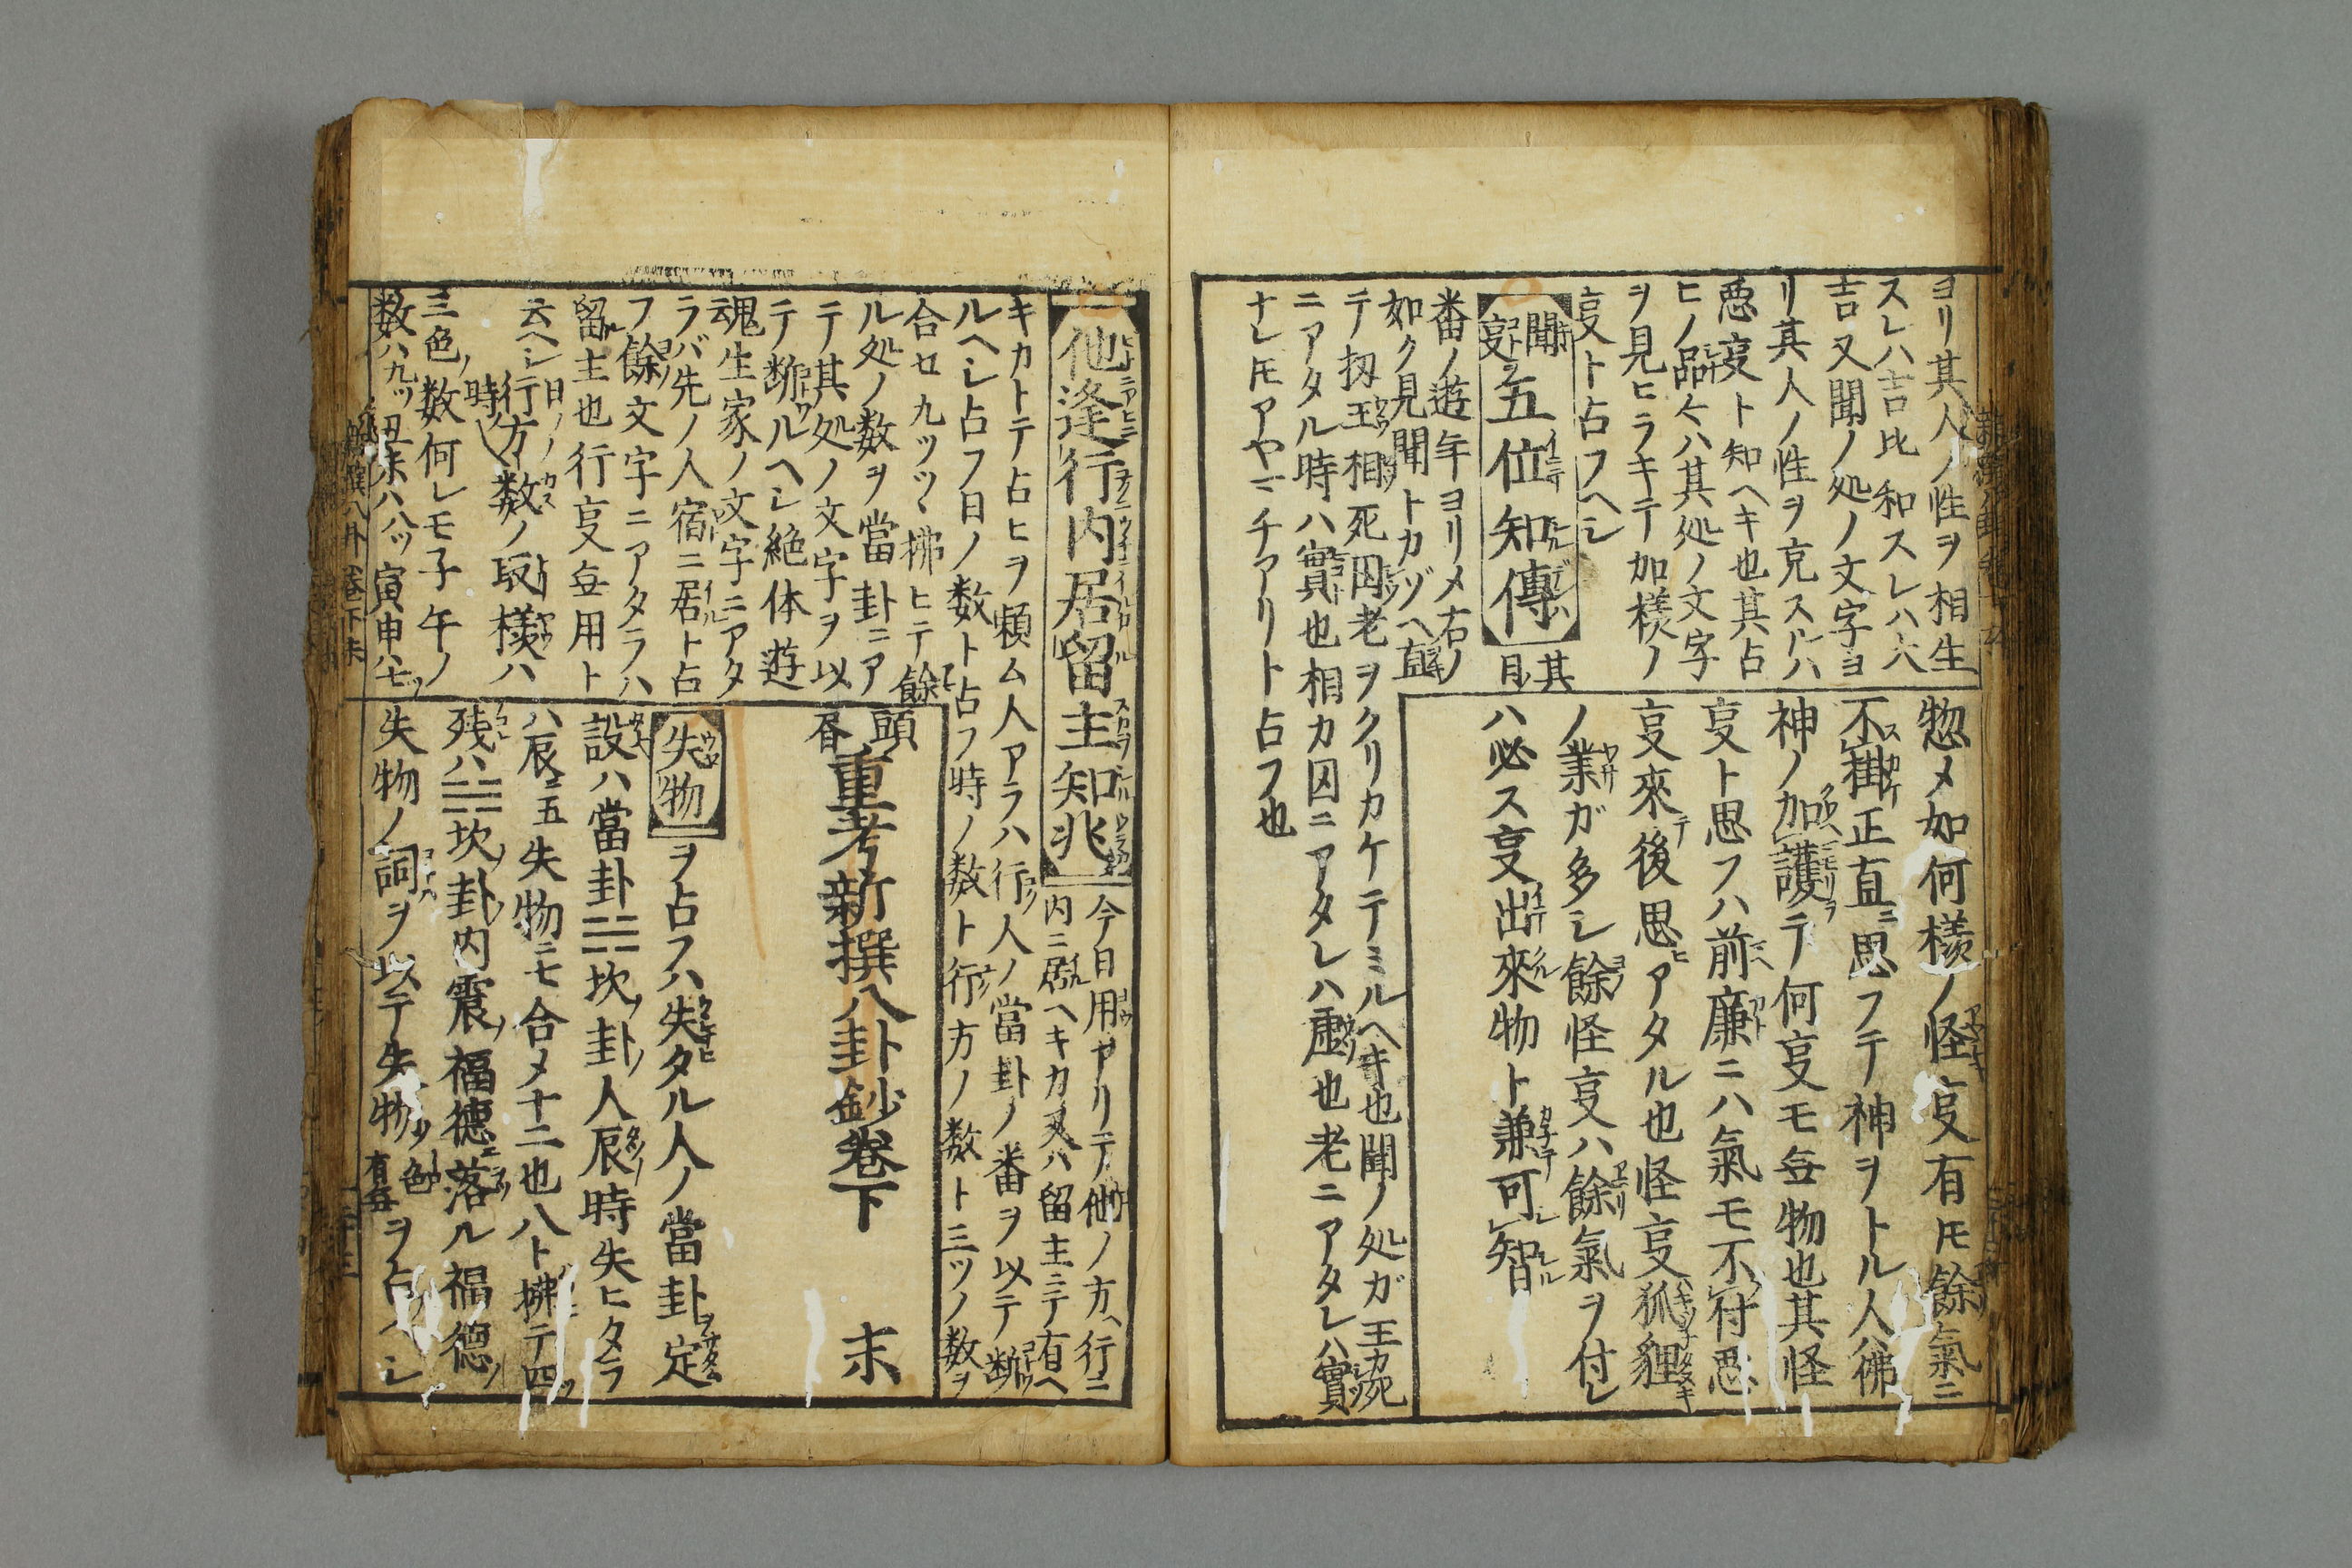 ヨリ其人ノ性ヲ相生
スレハ吉比和スレハ大
吉又聞ノ処ノ文字ヨ
リ其人ノ性ヲ克スレハ
悪㕝ト知ヘキ也其占
ヒノ品々ハ其処ノ文字
ヲ見ヒラキテ加様ノ
㕝ト占フヘシ
聞㕝五位知傳
其
番ノ遊年ヨリメ右ノ
如ク見聞トカゾヘ直
テ扨王相死囚老ヲクリカケテミルヘキ也聞ノ処ガ王カ死
ニアタル時ハ實也相カ囚ニアタレハ虚也老ニアタレハ實
ナレ𪜈アヤマチアリト占フ也
惣メ如何様ノ怪㕝有𪜈餘氣ニ
不掛正直ニ思フテ神ヲトル人ハ佛
神ノ加護ニテ何㕝モ無物也其怪
㕝ト思フハ前廉ニハ氣モ不付思
㕝來テ後思ヒアタル也怪㕝狐狸
ノ業ガ多シ餘ノ怪㕝ハ餘氣ヲ付レ
ハ必ス㕝出來物ト兼可智
他逢行内居留主知兆
今日用アリテ他ノ方ヘ行ニ
内ニ居ヘキカ又ハ留主ニテ有ヘ
キカトテ占ヒヲ頼ム人アラハ行人ノ當卦ノ番ヲ以テ断
ルヘシ占フ日ノ数ト占フ時ノ数ト行方ノ数ト三ツノ数ヲ
合セ九ツツヽ拂ヒテ餘
ル処ノ数ヲ當卦ニア
テ其処ノ文字ヲ以
テ断ルヘシ絶体遊
魂生家ノ文字ニアタ
ラバ先ノ人宿ニ居ト占
フ餘ノ文字ニアタラハ
留主也行㕝無用ト
云ヘシ日ノ時ノ行方ノ数ノ取様ハ
三色ノ数何レモ子午ノ
数ハ九ツ丑未ハ八ツ寅申ハ七ツ
頭昼重考新撰八卦鈔巻下 末
失物ヲ占フハ失タル人ノ當卦ヲ定
設ハ當卦☵坎ノ卦ノ人辰ノ時失ヒタラ
ハ辰ニ五失物ニ七合メ十二也八ト拂テ四ツ
残ハ☵坎ノ卦ノ内震ノ福徳ニ落ル福徳ノ
失物ノ詞ヲ以テ失物ノ色有無ヲ占ヘシ